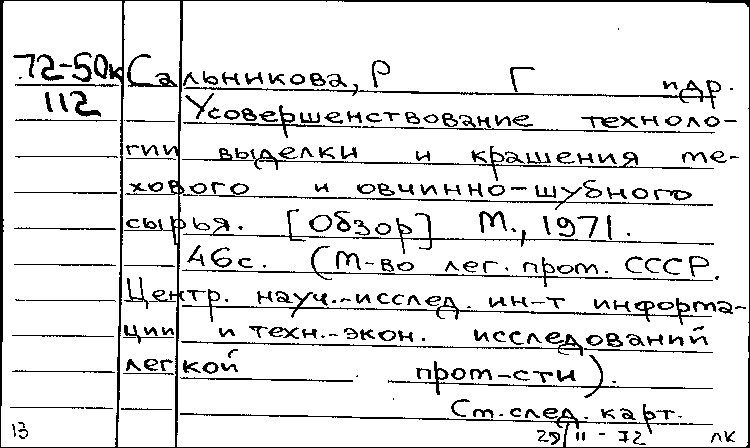 72-50к Сальникова, Р Г и др.
112 Усовершенствование техноло-
гии выделки и крашения ме-
хового и овчинно-шубного
сырья. [Обзор] М., 1971.
46с. (М-во лег. пром. СССР.
Центр. науч.-исслед. ин-т информа-
ции и техн.-экон. исследований
легкой пром-сти).
См. след. карт.
13 29/II-72 ЛК